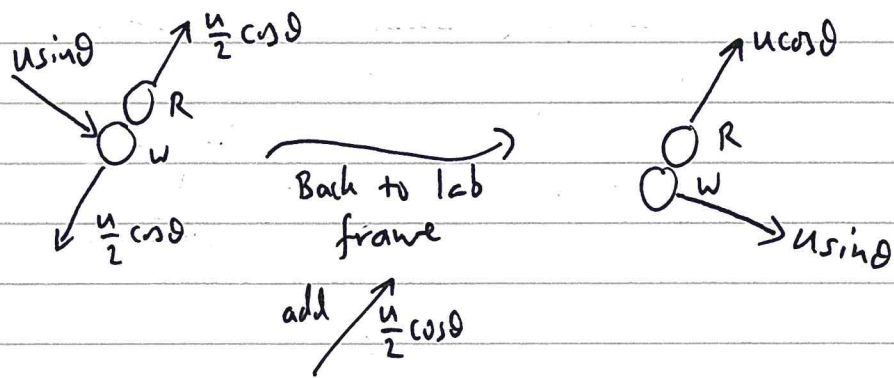 usinθ
u/2 cosθ
R
W
u/2 cosθ
Back to lab
frame
add
u/2 cosθ
ucosθ
R
W
usinθ